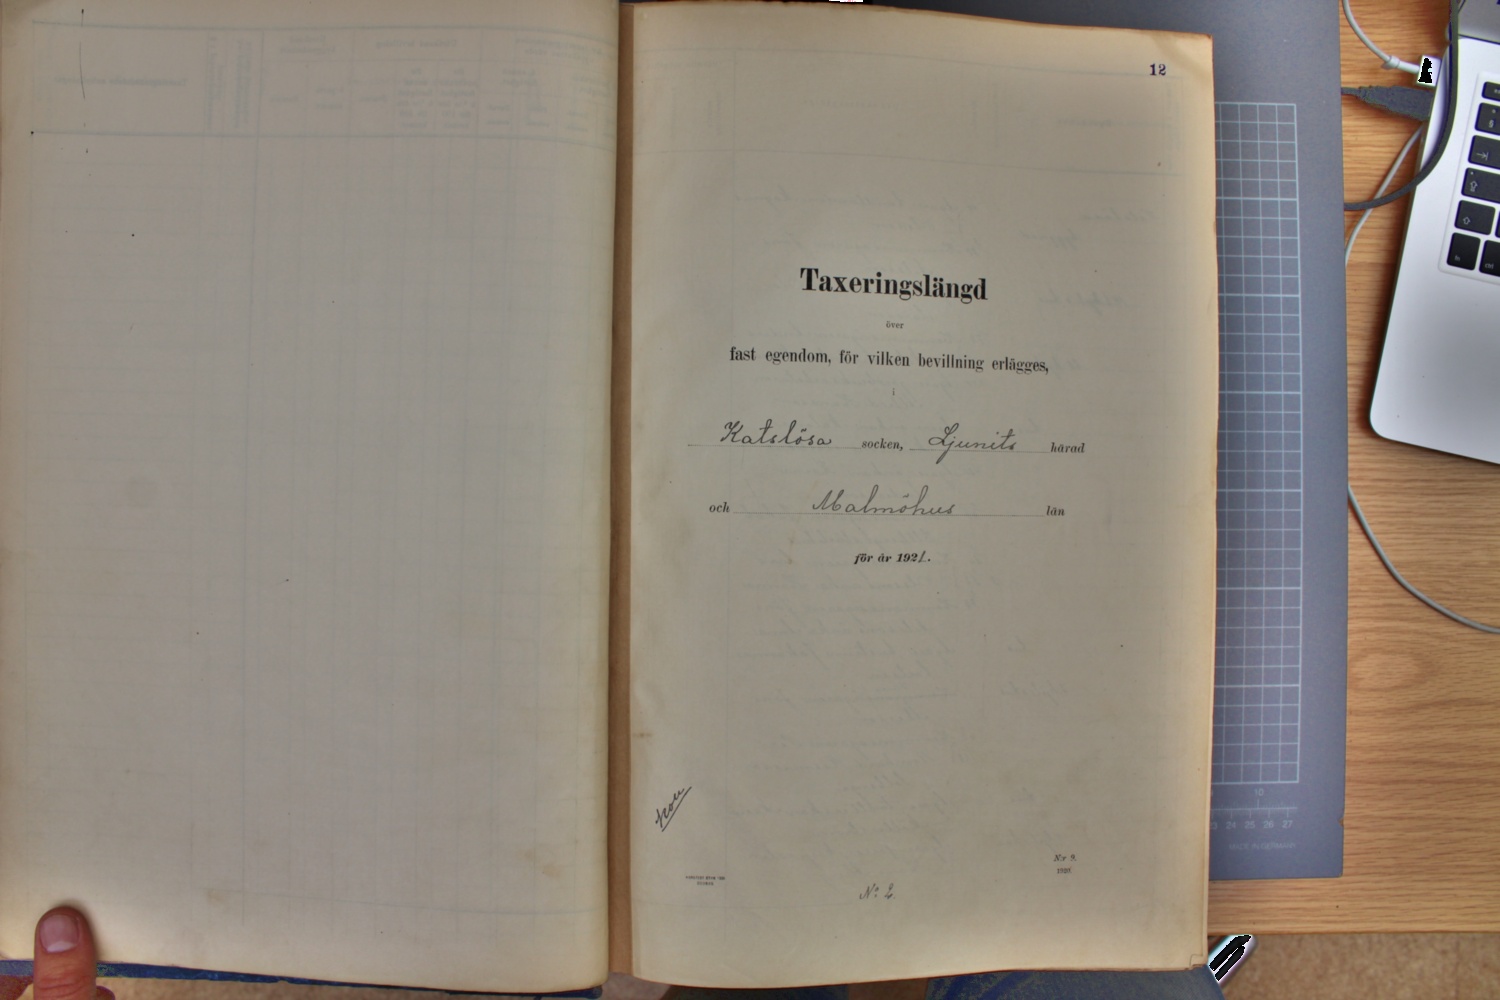 12
Taxeringslängd
över
fast egendom, för vilken bevillning erlägges,
i
Katslösa socken, Ljunits härad
och Malmöhus län
för år 1921.
N:r 9.
1920.
No 2
10
23 24 25 26 27
MADE IN GERMANY